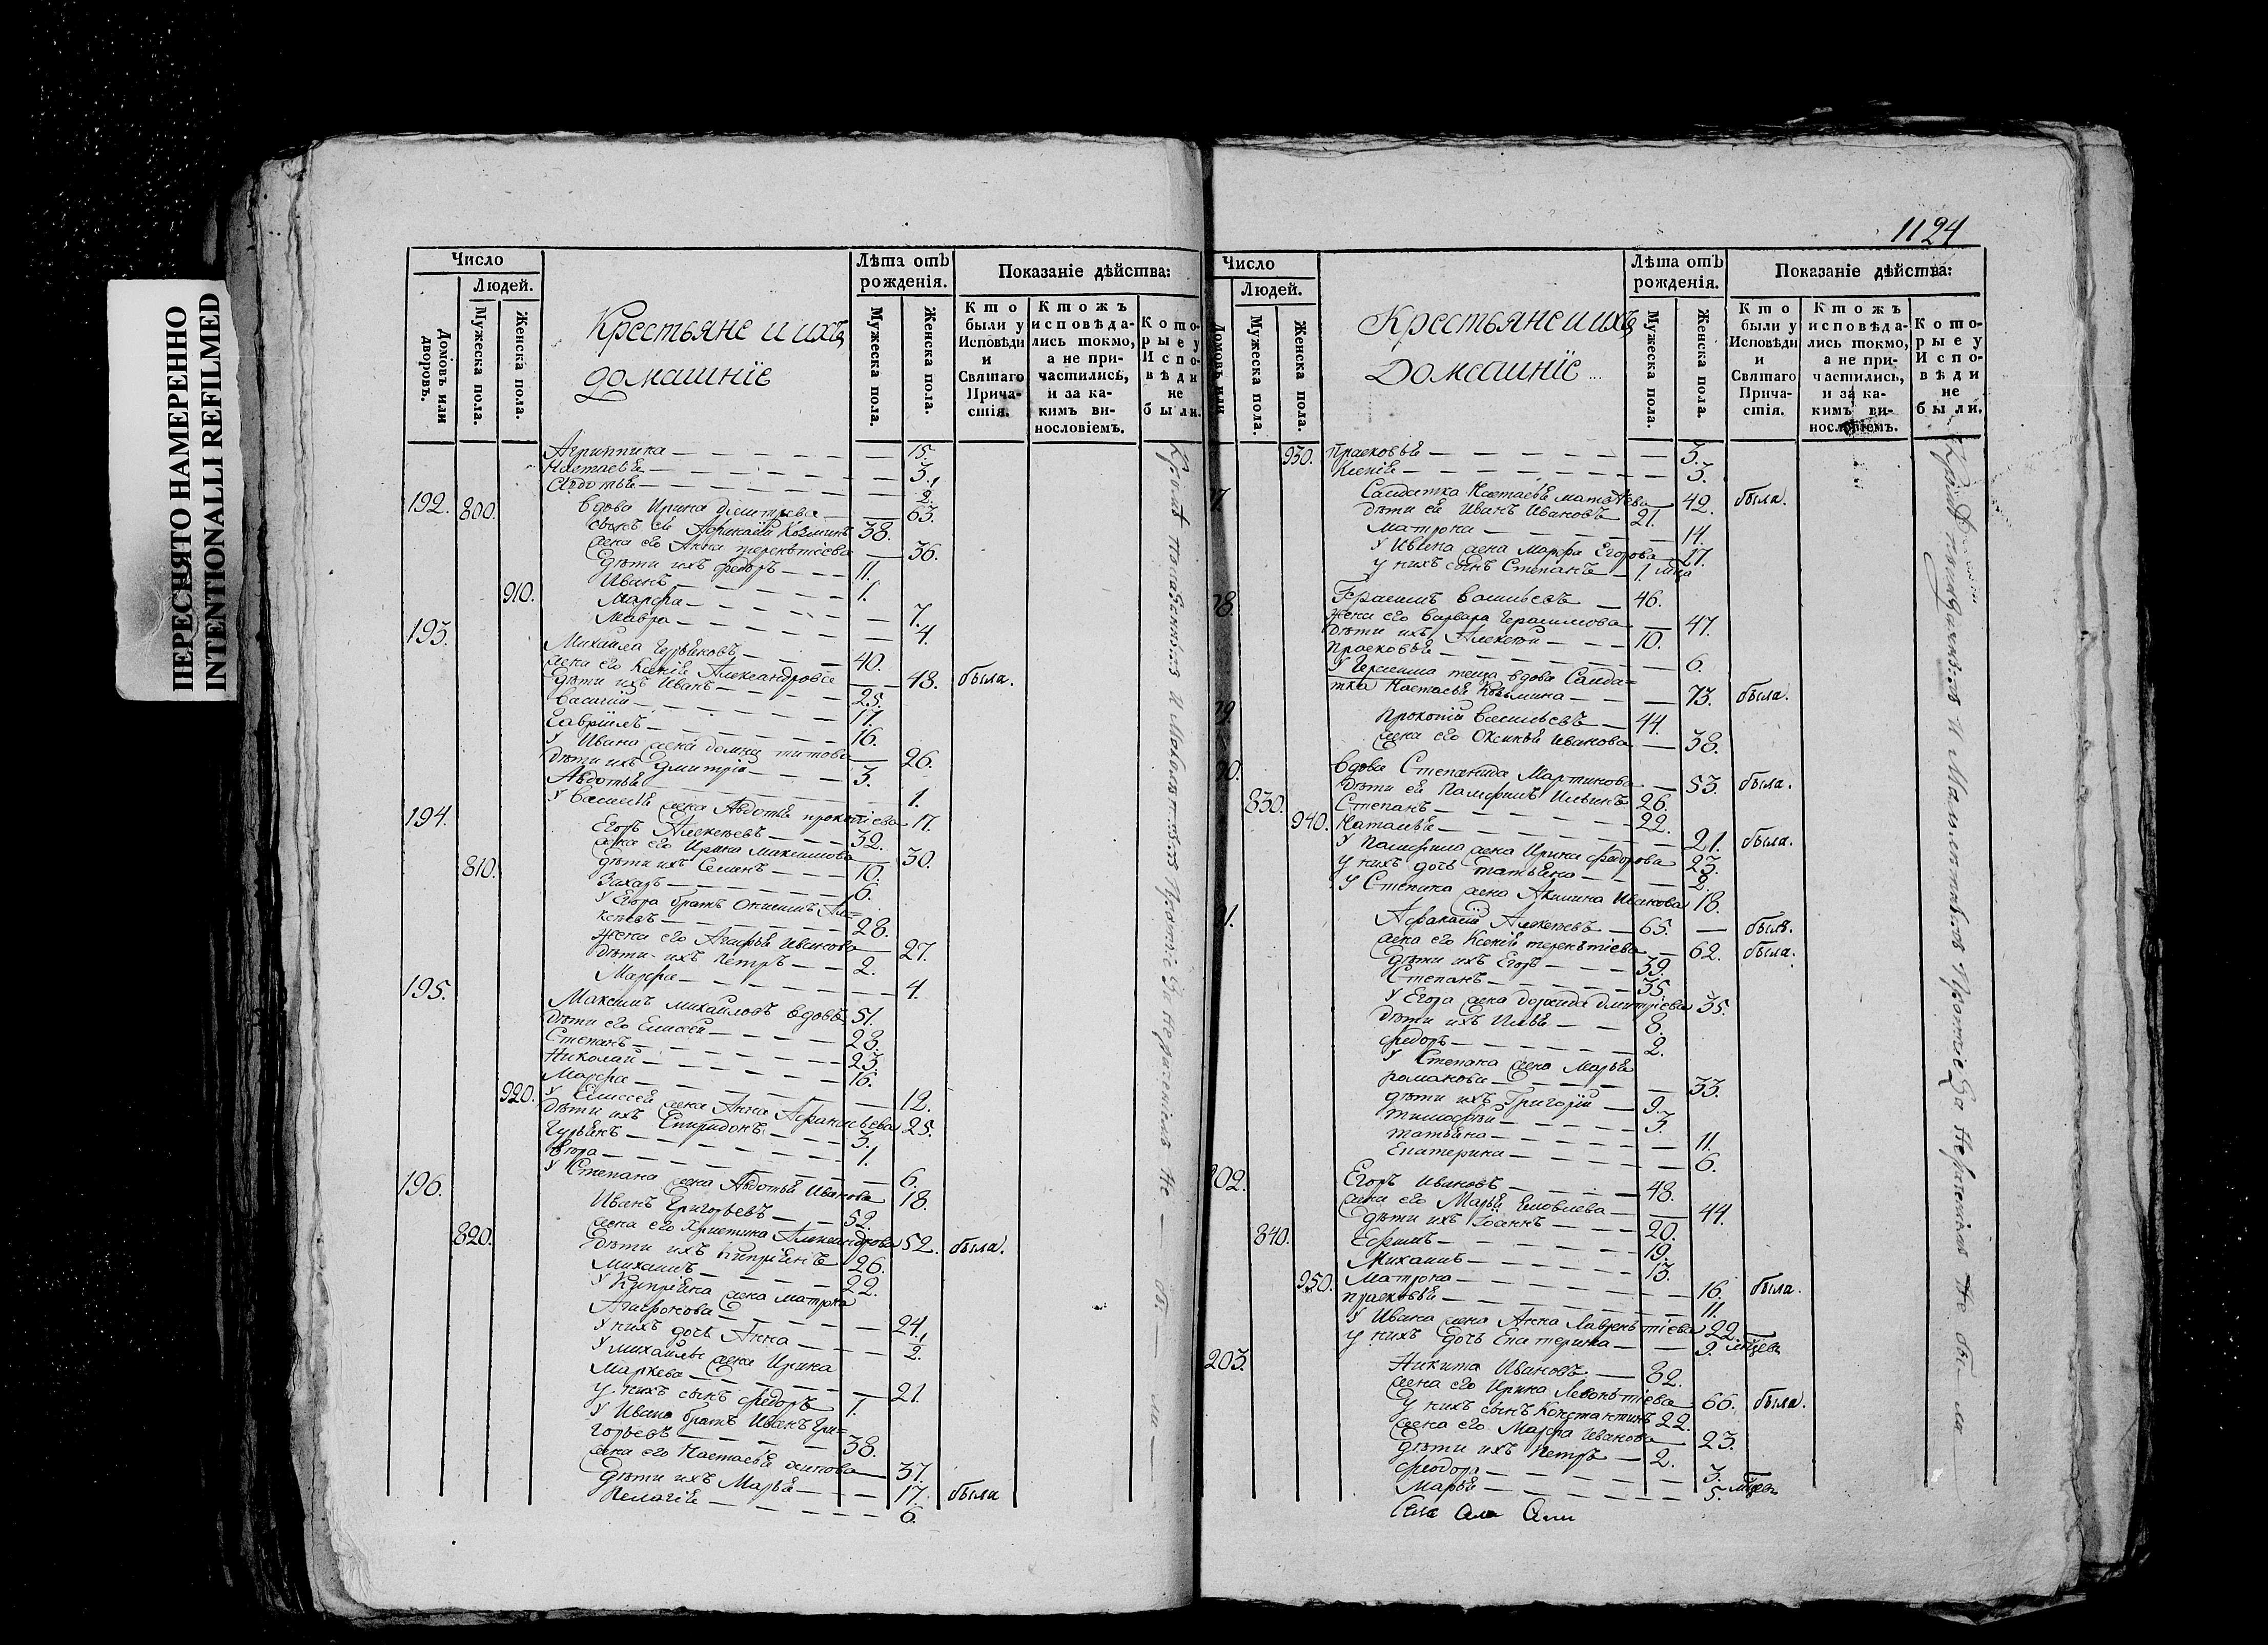 ПЕРЕСНЯТО НАМЕРЕННО
INTENTIONALLI REFILMED
Число
Людей.
Домовъ или дворовъ.
Мужеска пола.
Женска пола.
Крестьяне и ихъ
домашніе
Лѣта отъ рожденія.
Мужеска пола.
Женска пола.
Показаніе дѣйства:
Кто были у Исповѣди и Святаго Причастія.
Ктожъ исповѣдались токмо, а не причастились, и за какимъ винословіемъ.
Которые у Исповѣди не были.
Агриппина 15.
Настасья 3.
Авдотья 2.
192. 800. Вдова Ирина Дмитрева 63.
сынъ ея Афанасій Козминъ 38.
жена его Анна Терентіева 36.
дѣти ихъ Федоръ 11.
Иванъ 1.
910. Марфа 7.
Мавра 4.
193. Михайла Гурьяновъ 40.
жена его Ксенія Александровa 48. была.
дѣти ихъ Иванъ 25.
Василій 17.
Гавріилъ 16.
у Ивана жена Домна Титова 26.
дѣти ихъ Дмитрій 3.
Авдотья 1.
у Василья жена Авдотья Прокопіева 17.
194. Егоръ Алексѣевъ 32.
жена его Ирина Максимова 30.
810. дѣти ихъ Семенъ 10.
Захаръ 6.
у Егора братъ Онисимъ Але-
ксѣевъ 28.
жена его Агафья Иванова 27.
дѣти ихъ Петръ 2.
Марфа 4.
195. Максимъ Михайловъ вдовъ 51.
дѣти его Елисей 28.
Степанъ 23.
Николай 16.
Марфа 12.
920. у Елисея жена Анна Афанасьева 25.
дѣти ихъ Спиридонъ 3.
Гурьянъ 1.
6.
у Степана жена Авдотья Иванова 18.
196. Иванъ Григорьевъ 52.
жена его Христина Александрова 52. была.
820. дѣти ихъ Кипріянъ 26.
Михаилъ 22.
у Кипріяна жена Матрона
Агафонова 24.
у нихъ дочь Анна 2.
у Михайлы жена Ирина
Маркева 21.
у нихъ сынъ Федоръ 1.
у Ивана братъ Иванъ Гри-
горьевъ 38.
жена его Настасья 37.
дѣти ихъ Марья 17. была
Пелагія 6.
Кромѣ показанныхъ и малолѣтныхъ протчіе за нераченіемъ не бы ли
1124
Число
Людей.
Домовъ или
Мужеска пола.
Женска пола.
Крестьяне и ихъ
Домашніе
Лѣта отъ рожденія.
Мужеска пола.
Женска пола.
Показаніе дѣйства:
Кто были у Исповѣди и Святаго Причастія.
Ктожъ исповѣдались токмо, а не причастились, и за какимъ винословіемъ.
Которые у Исповѣди не были.
930. Прасковья 5.
Ксенія 3.
7. Салдатка Настасья Матвѣева 42. была.
дѣти ея Иванъ Ивановъ 21.
Матрона 14.
у Ивана жена Марфа Егорова 17.
у нихъ сынъ Степанъ 1. мца
98. Герасимъ Васильевъ 46.
жена его Варвара Герасимова 47.
дѣти ихъ Алексѣй 10.
Прасковья 6.
у Герасима теща вдова Салда-
тка Настасья Козьмина 73. была.
99. Прокопій Васильевъ 44.
жена его Оксинья Иванова 38.
00. вдова Степанида Мартинова 53. была.
дѣти ея Памфилъ Ильинъ 26.
830. Степанъ 22.
940. Наталья 21. была.
у Памфила жена Ирина Федорова 23.
у нихъ дочь Татьяна 2.
у Степана жена Акилина Иванова 18.
01. Афанасій Алексѣевъ 65. былъ.
жена его Ксенія Терентіева 62. была.
дѣти ихъ Егоръ 39.
Степанъ 35.
у Егора жена Дмитріева 35.
дѣти ихъ Илья 8.
Федоръ 2.
у Степана жена Марья
Романова 33.
дѣти ихъ Григорій 9.
Тимофей 3.
Татьяна 11.
Екатерина 6.
202. Егоръ Ивановъ 48.
жена его Марья Яковлева 44.
дѣти ихъ Іоаннъ 20.
840. Ефимъ 19.
Михаилъ 13.
950. Матрона 16. была.
Прасковья 11.
у Ивана жена Анна Лаврентіева 22.
у нихъ дочь Екатерина 9. мцевъ
203. Никита Ивановъ 82.
жена его Ирина Левонтіева 66. была.
у нихъ сынъ Константинъ 22.
жена его Марфа Иванова 23.
дѣти ихъ Петръ 2.
Феодора 3.
Марья 5. мцевъ
Кромѣ показанныхъ и малолѣтныхъ протчіе за нераченіемъ не бы ли